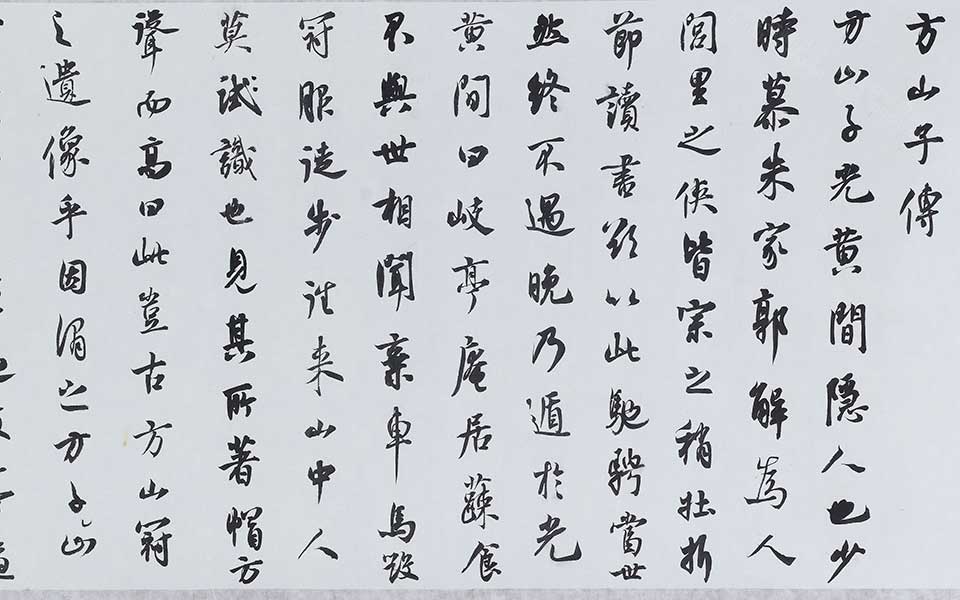 方山子傳
方山子光黄間隱人也少
時慕朱家郭解為人
閭里之俠皆宗之稍壯折
節讀書欲以此馳騁當世
然終不遇晚乃遁於光
黄間曰岐亭庵居蔬食
不與世相聞棄車馬毀
冠服徒步往来山中人
莫試識也見其所著帽方
聳而高曰此豈古方山冠
之遺像乎因謂之方子山